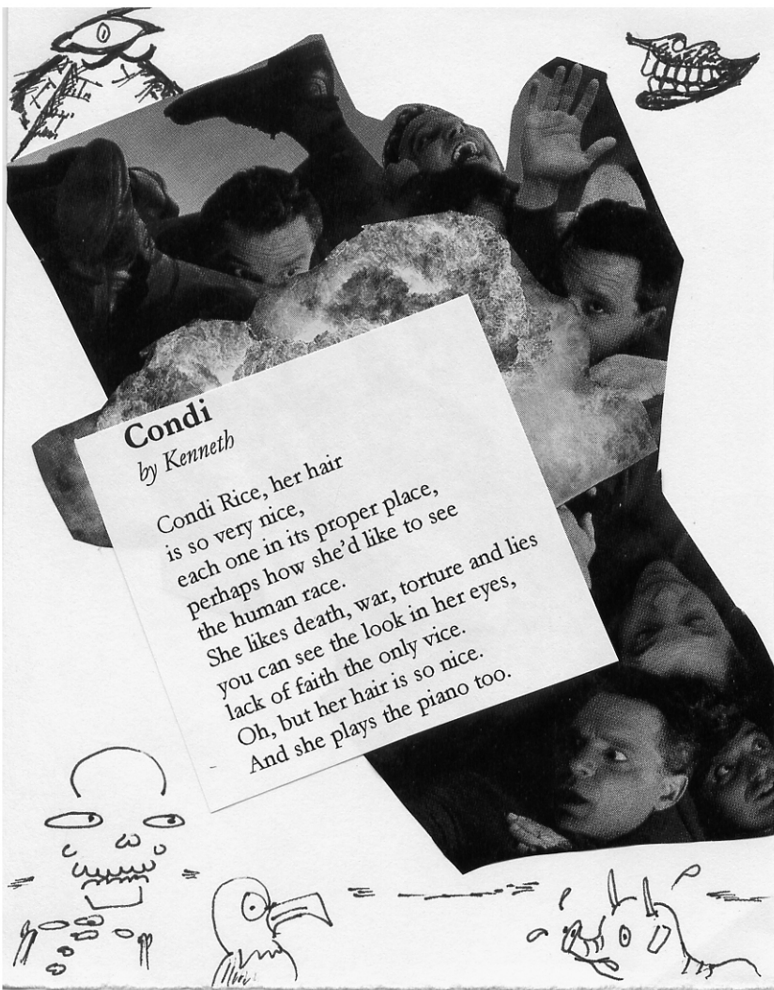 Condi
by Kenneth
Condi Rice, her hair
is so very nice,
each one in its proper place,
perhaps how she'd like to see
the human race.
She likes death, war, torture and lies
you can see the look in her eyes,
lack of faith the only vice.
Oh, but her hair is so nice.
And she plays the piano too.